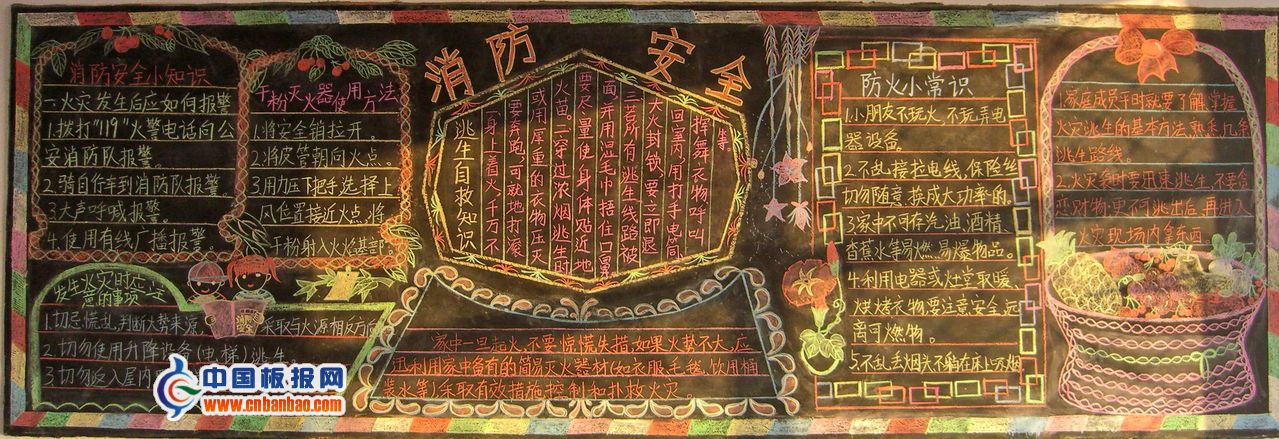 消防安全
消防安全小知识
一.火灾发生后应如何报警
1.拨打"119"火警电话向公
安消防队报警。
2.骑自行车到消防队报警。
3.大声呼喊报警。
4.使用有线广播报警。
干粉灭火器使用方法
1.将安全销拉开。
2.将皮管朝向火点。
3.用力压下把手,选择上
风位置接近火点,将
干粉射入火焰基部
发生火灾时应注
意的事项
1.切忌慌乱,判断火势来源,
采取与火源相反方向
2.切勿使用升降设备(电梯)逃生
3.切勿返入屋内
逃生自救知识
一.身上着火,千万不
要奔跑,可就地打滚
或用厚重的衣物压灭
火苗。二.穿过浓烟逃生时,
要尽量使身体贴近地
面,并用湿毛巾捂住口鼻
三.若所有逃生线路被
大火封锁,要立即退
回室内,用打手电筒,
挥舞衣物,呼叫
等
家中一旦起火,不要惊慌失措,如果火势不大,应
迅利用家中备有的简易灭火器材(如衣服毛毯,饮用桶
装水等)采取有效措施控制和扑救火灾
防火小常识
1.小朋友不玩火,不玩弄电
器设备。
2.不乱接拉电线,保险丝
切勿随意换成大功率的。
3.家中不可存汽油,酒精,
香蕉水等易燃.易爆物品。
4.利用电器或灶堂取暖
煤烤衣物,要注意安全,远
离可燃物。
5.不乱丢烟头,不躺在床上吸烟
1.家庭成员平时就要了解.掌握
火灾逃生的基本方法,熟悉几条
逃生路线。
2.火灾袭时要迅速逃生,不要贪
恋财物,更不可逃出后,再进入
火灾现场内拿东西
中国板报网
www.cnbanbao.com